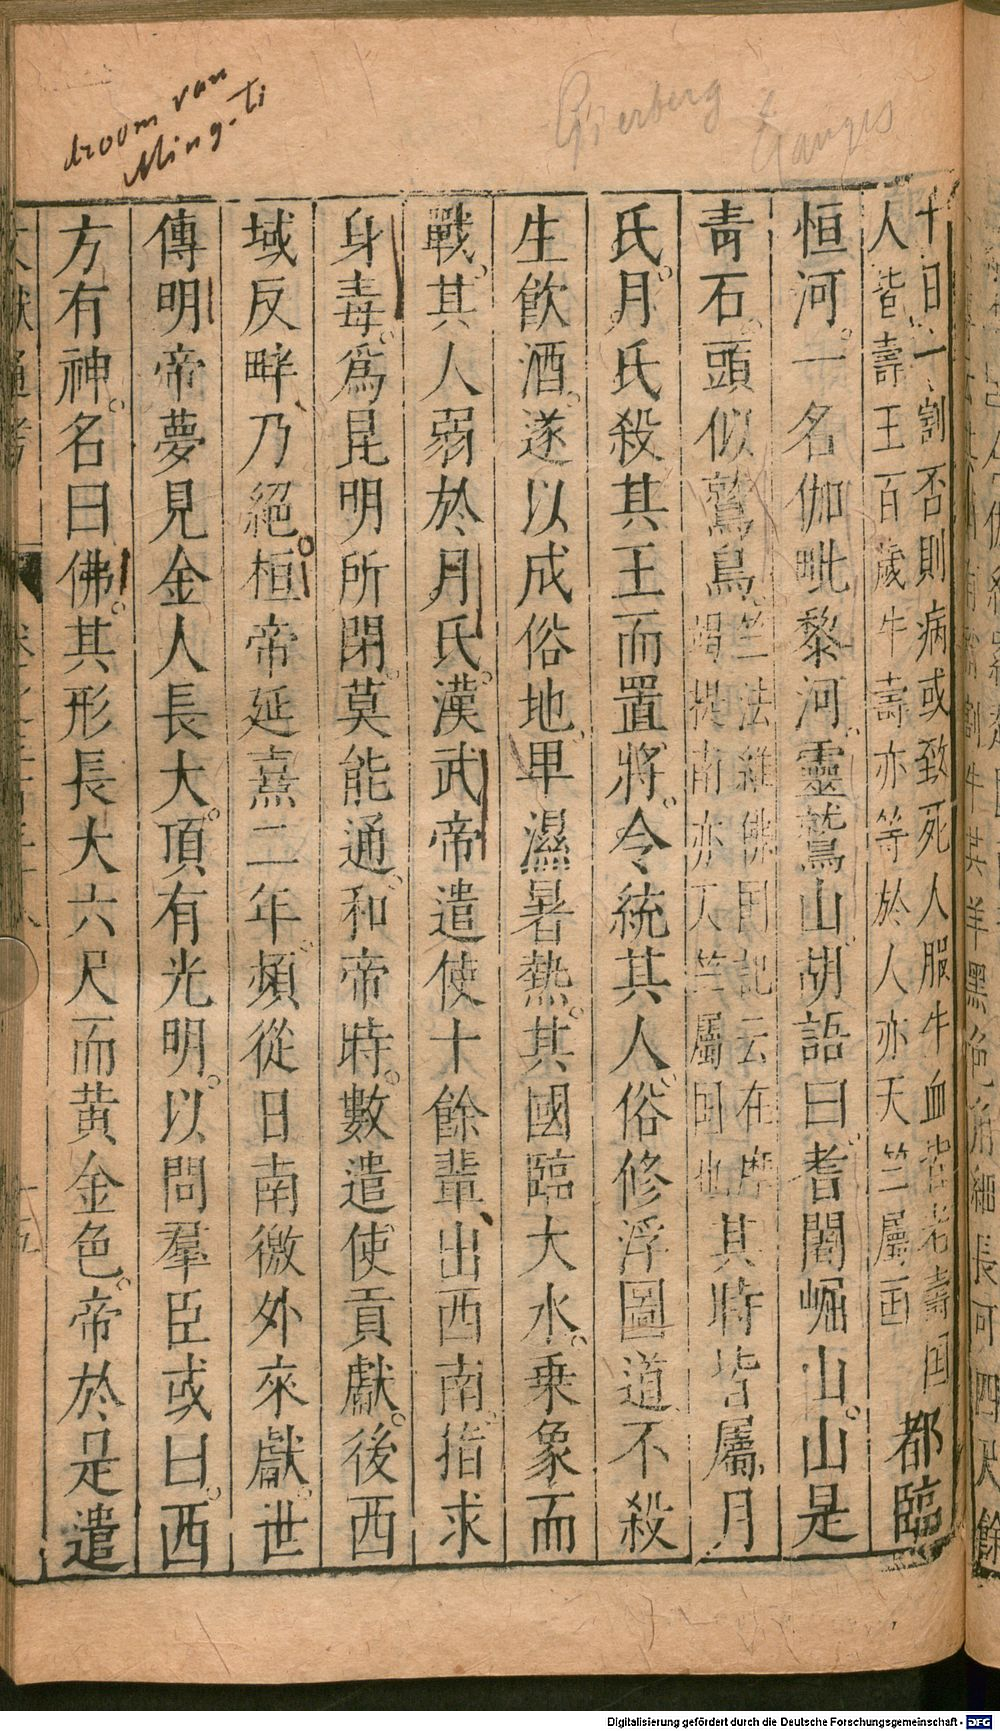 droom van
Ming-ti
Gierberg
Ganges
十日一割否則病或致死人服牛血皆老壽国
人皆壽王百歲牛壽亦等於人亦天竺屬國
都臨
恒河。一名伽毗黎河。靈鷲山。胡語曰。耆闍崛山。山是
青石。頭似鷲鳥。
竺法維佛国記云在摩
竭提南亦天竺屬国也
其時皆屬月
氏。月氏殺其王而置將。令統其人。俗修浮圖道。不殺
生飲酒。遂以成俗。地卑濕暑熱。其國臨大水。乗象而
戰。其人弱於月氏。漢武帝遣使十餘輩、出西南。指求
身毒。爲昆明所閉。莫能通。和帝時。數遣使貢獻。後西
域反畔、乃絕。桓帝延熹二年。頻從日南徼外來獻。世
傳明帝夢見金人長大。頂有光明。以問羣臣或曰。西
方有神。名曰佛。其形長大六尺而黄金色。帝於是遣
文獻通考
Digitalisierung gefördert durch die Deutsche Forschungsgemeinschaft - DFG